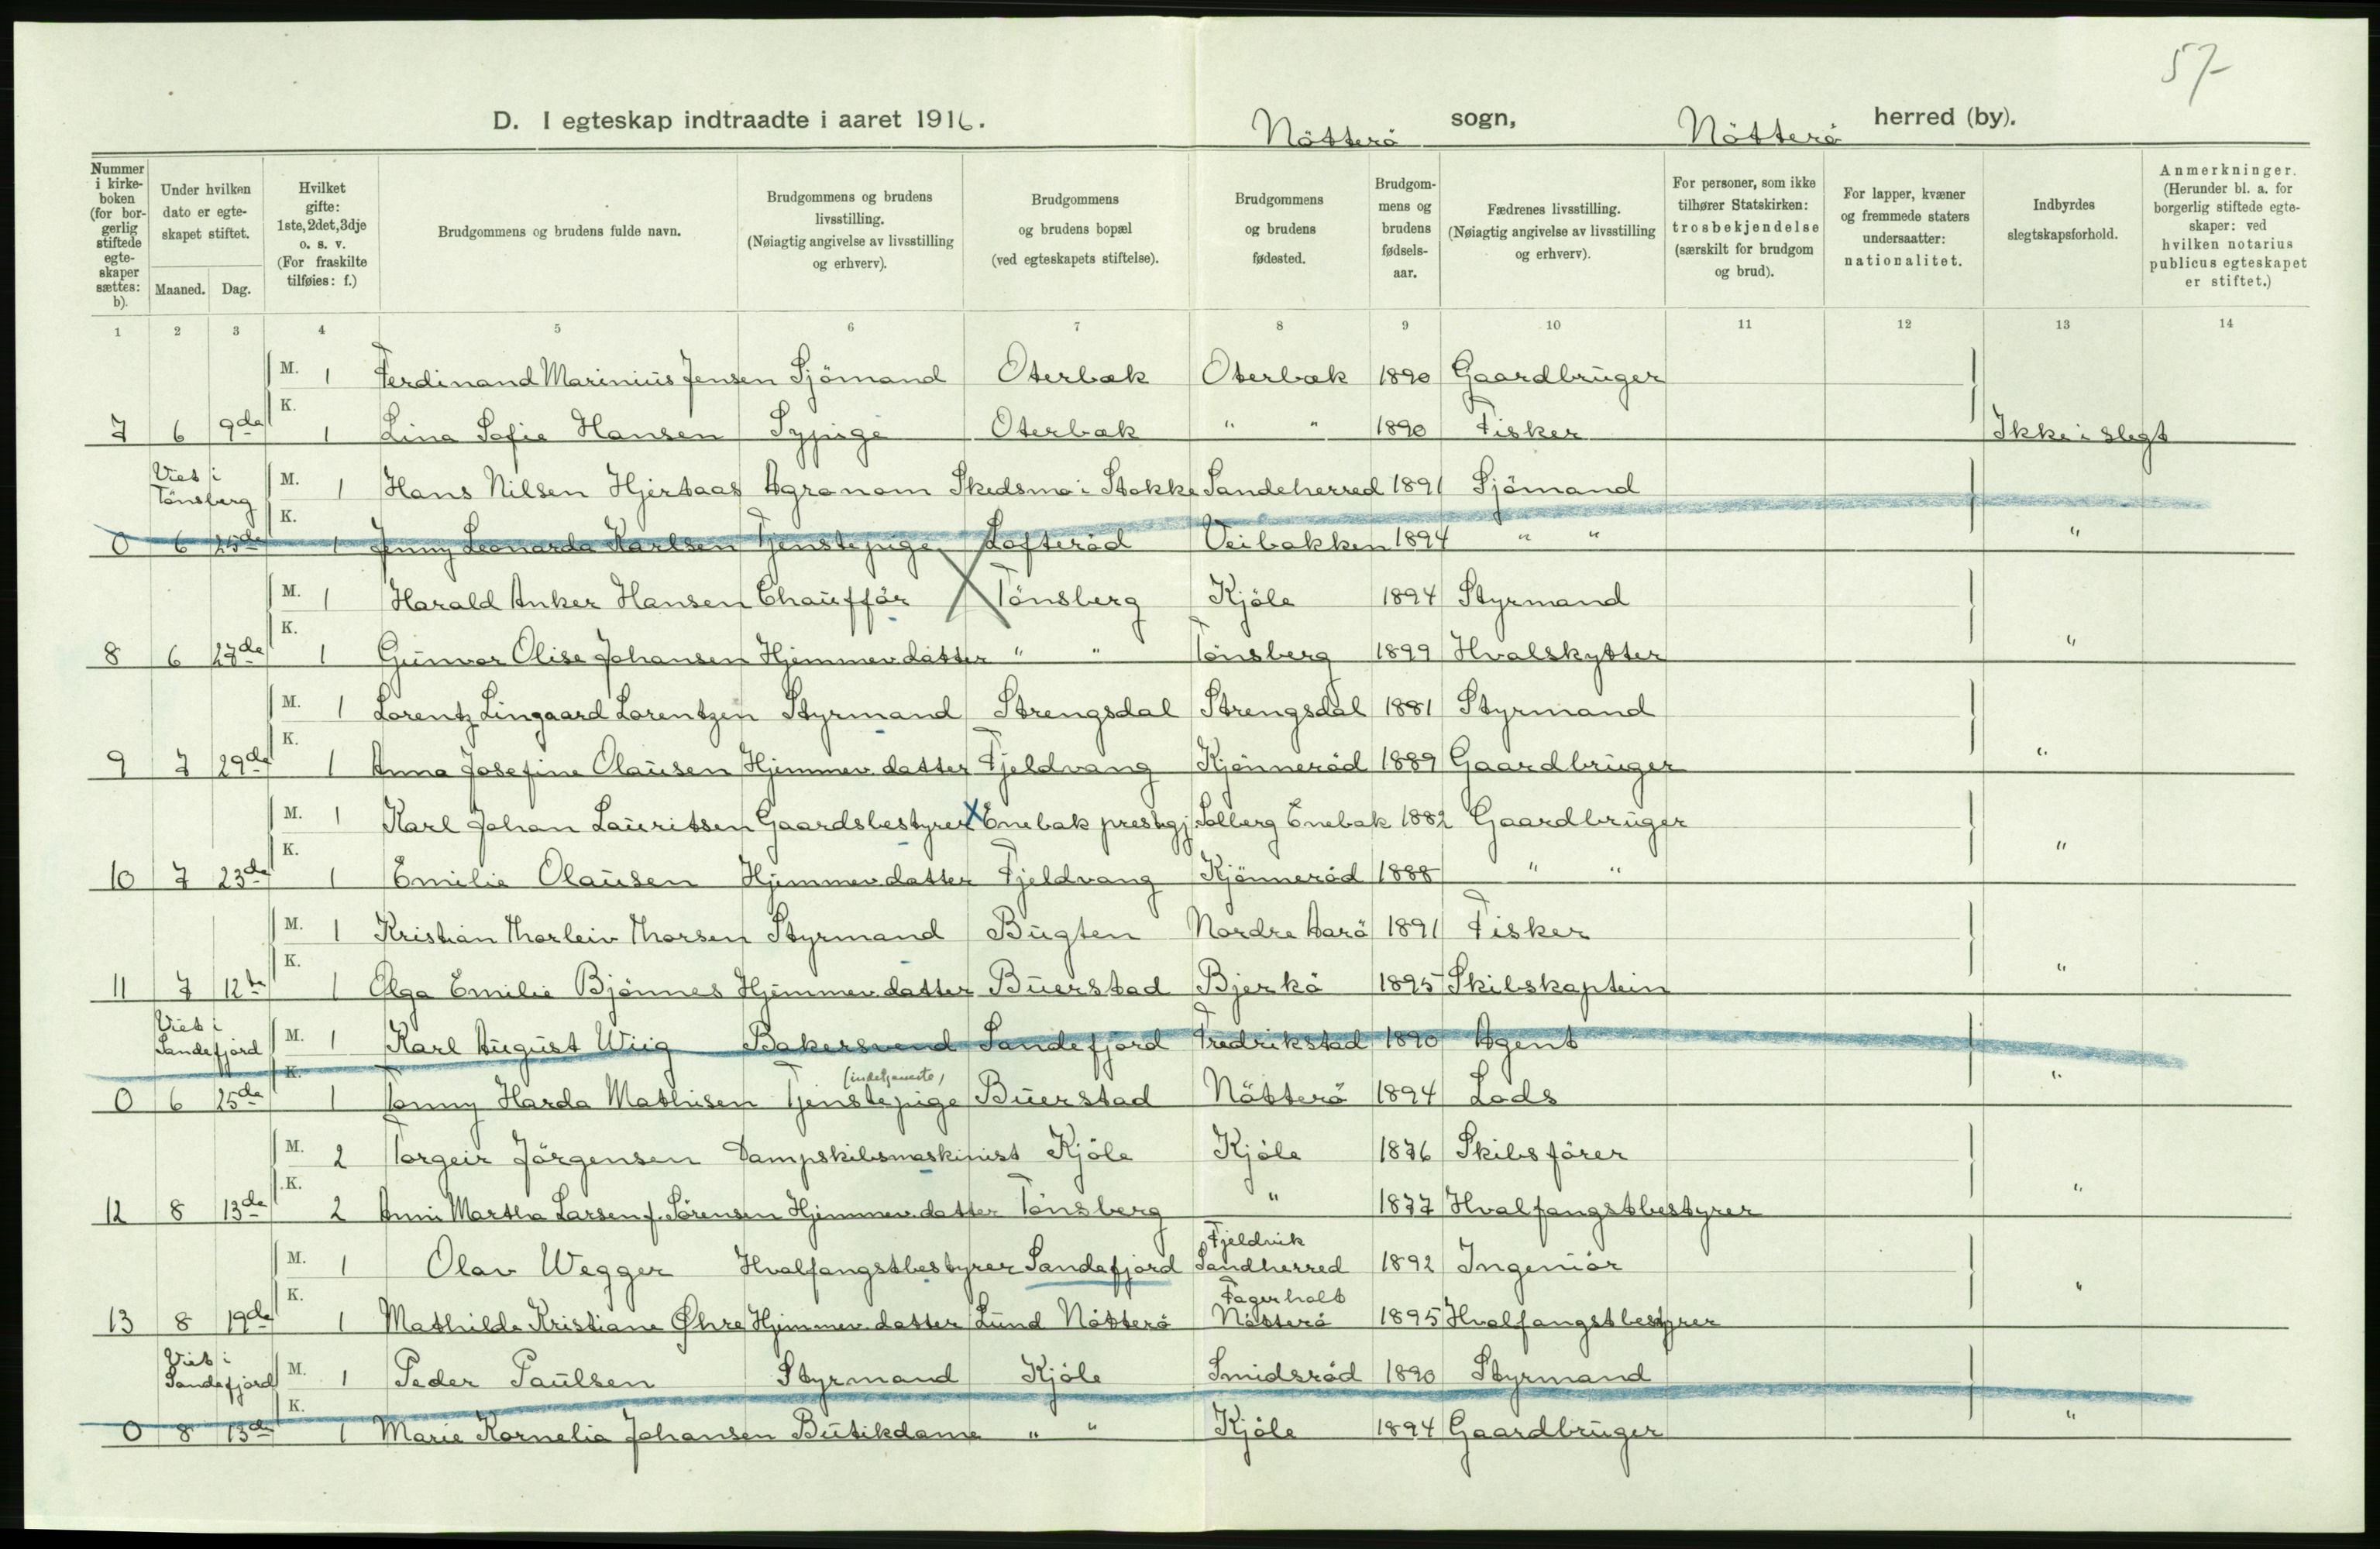 57
D. I egteskap indtraadte i aaret 1916. Nötterö sogn, Nötterö herred (by).
Nummer i kirke-boken (for bor-gerlig stiftede egte-skaper sættes: b). Under hvilken dato er egte-skapet stiftet. Maaned. Dag. Hvilket gifte: 1ste, 2det, 3dje o. s. v. (For fraskilte tilføies: f.) Brudgommens og brudens fulde navn. Brudgommens og brudens livsstilling. (Nøiagtig angivelse av livsstilling og erhverv). Brudgommens og brudens bopæl (ved egteskapets stiftelse). Brudgommens og brudens fødested. Brudgom-mens og brudens fødsels-aar. Fædrenes livsstilling. (Nøiagtig angivelse av livsstilling og erhverv). For personer, som ikke tilhører Statskirken: trosbekjendelse (særskilt for brudgom og brud). For lapper, kvæner og fremmede staters undersaatter: nationalitet. Indbyrdes slegtskapsforhold. Anmerkninger. (Herunder bl. a. for borgerlig stiftede egte-skaper: ved hvilken notarius publicus egteskapet er stiftet.)
1 2 3 4 5 6 7 8 9 10 11 12 13 14
M. 1 Ferdinand Marinius Jensen Sjömand Oterbæk Oterbæk 1890 Gaardbruger
7 6 9de K. 1 Lina Sofie Hansen Sypige Oterbæk " " 1890 Fisker Ikke i slegt
Viet i Tönsberg M. 1 Hans Nilsen Hjertaas Agronom Skedsmo i Stokke Sandeherred 1891 Sjömand
0 6 25de K. 1 Jenny Leonarda Karlsen Tjenstepige Lofteröd Veibakken 1894 " " "
M. 1 Harald Anker Hansen Chaufför Tönsberg Kjöle 1894 Styrmand
8 6 27de K. 1 Gunvor Olise Johansen Hjemmev. datter " " Tönsberg 1899 Hvalskytter "
M. 1 Lorentz Lingaard Lorentzen Styrmand Strengsdal Strengsdal 1881 Styrmand
9 7 29de K. 1 Anna Josefine Olausen Hjemmev. datter Fjeldvang Kjönneröd 1889 Gaardbruger "
M. 1 Karl Johan Lauritsen Gaardsbestyrer Enebak prestegj. Solberg Enebak 1882 Gaardbruger
10 7 23de K. 1 Emilie Olausen Hjemmev. datter Fjeldvang Kjönneröd 1888 " " "
M. 1 Kristian Thorleiv Thorsen Styrmand Bugten Nordre Aarö 1891 Fisker
11 7 12te K. 1 Olga Emilie Bjönnes Hjemmev. datter Buerstad Bjerkö 1895 Skibskaptein "
Viet i Sandefjord M. 1 Karl August Wiig Bakersvend Sandefjord Fredrikstad 1890 Agent
0 6 25de K. 1 Tanny Harda Mathisen Tjenstepige Buerstad Nötterö 1894 Lods "
M. 2 Torgeir Jörgensen Dampskibsmaskinist Kjöle Kjöle 1876 Skibsförer
12 8 13de K. 2 Anni Martha Larsen f. Sörensen Hjemmev. datter Tönsberg " 1877 Hvalfangstbestyrer "
M. 1 Olav Wegger Hvalfangstbestyrer Sandefjord Fjeldvik Sandherred 1892 Ingeniör
13 8 19de K. 1 Mathilde Kristiane Øhre Hjemmev. datter Lund Nötterö Fagerholt Nötterö 1895 Hvalfangstbestyrer "
Viet i Sandefjord M. 1 Peder Paulsen Styrmand Kjöle Smidsröd 1890 Styrmand
0 8 13de K. 1 Marie Kornelia Johansen Butikdame " " Kjöle 1894 Gaardbruger "